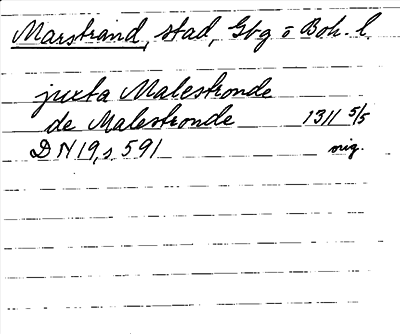 Marstrand, stad, Gbg o Boh. l.
juxta Malestronde
de Malestronde 1311 5/5
DN 19, s 591 orig.